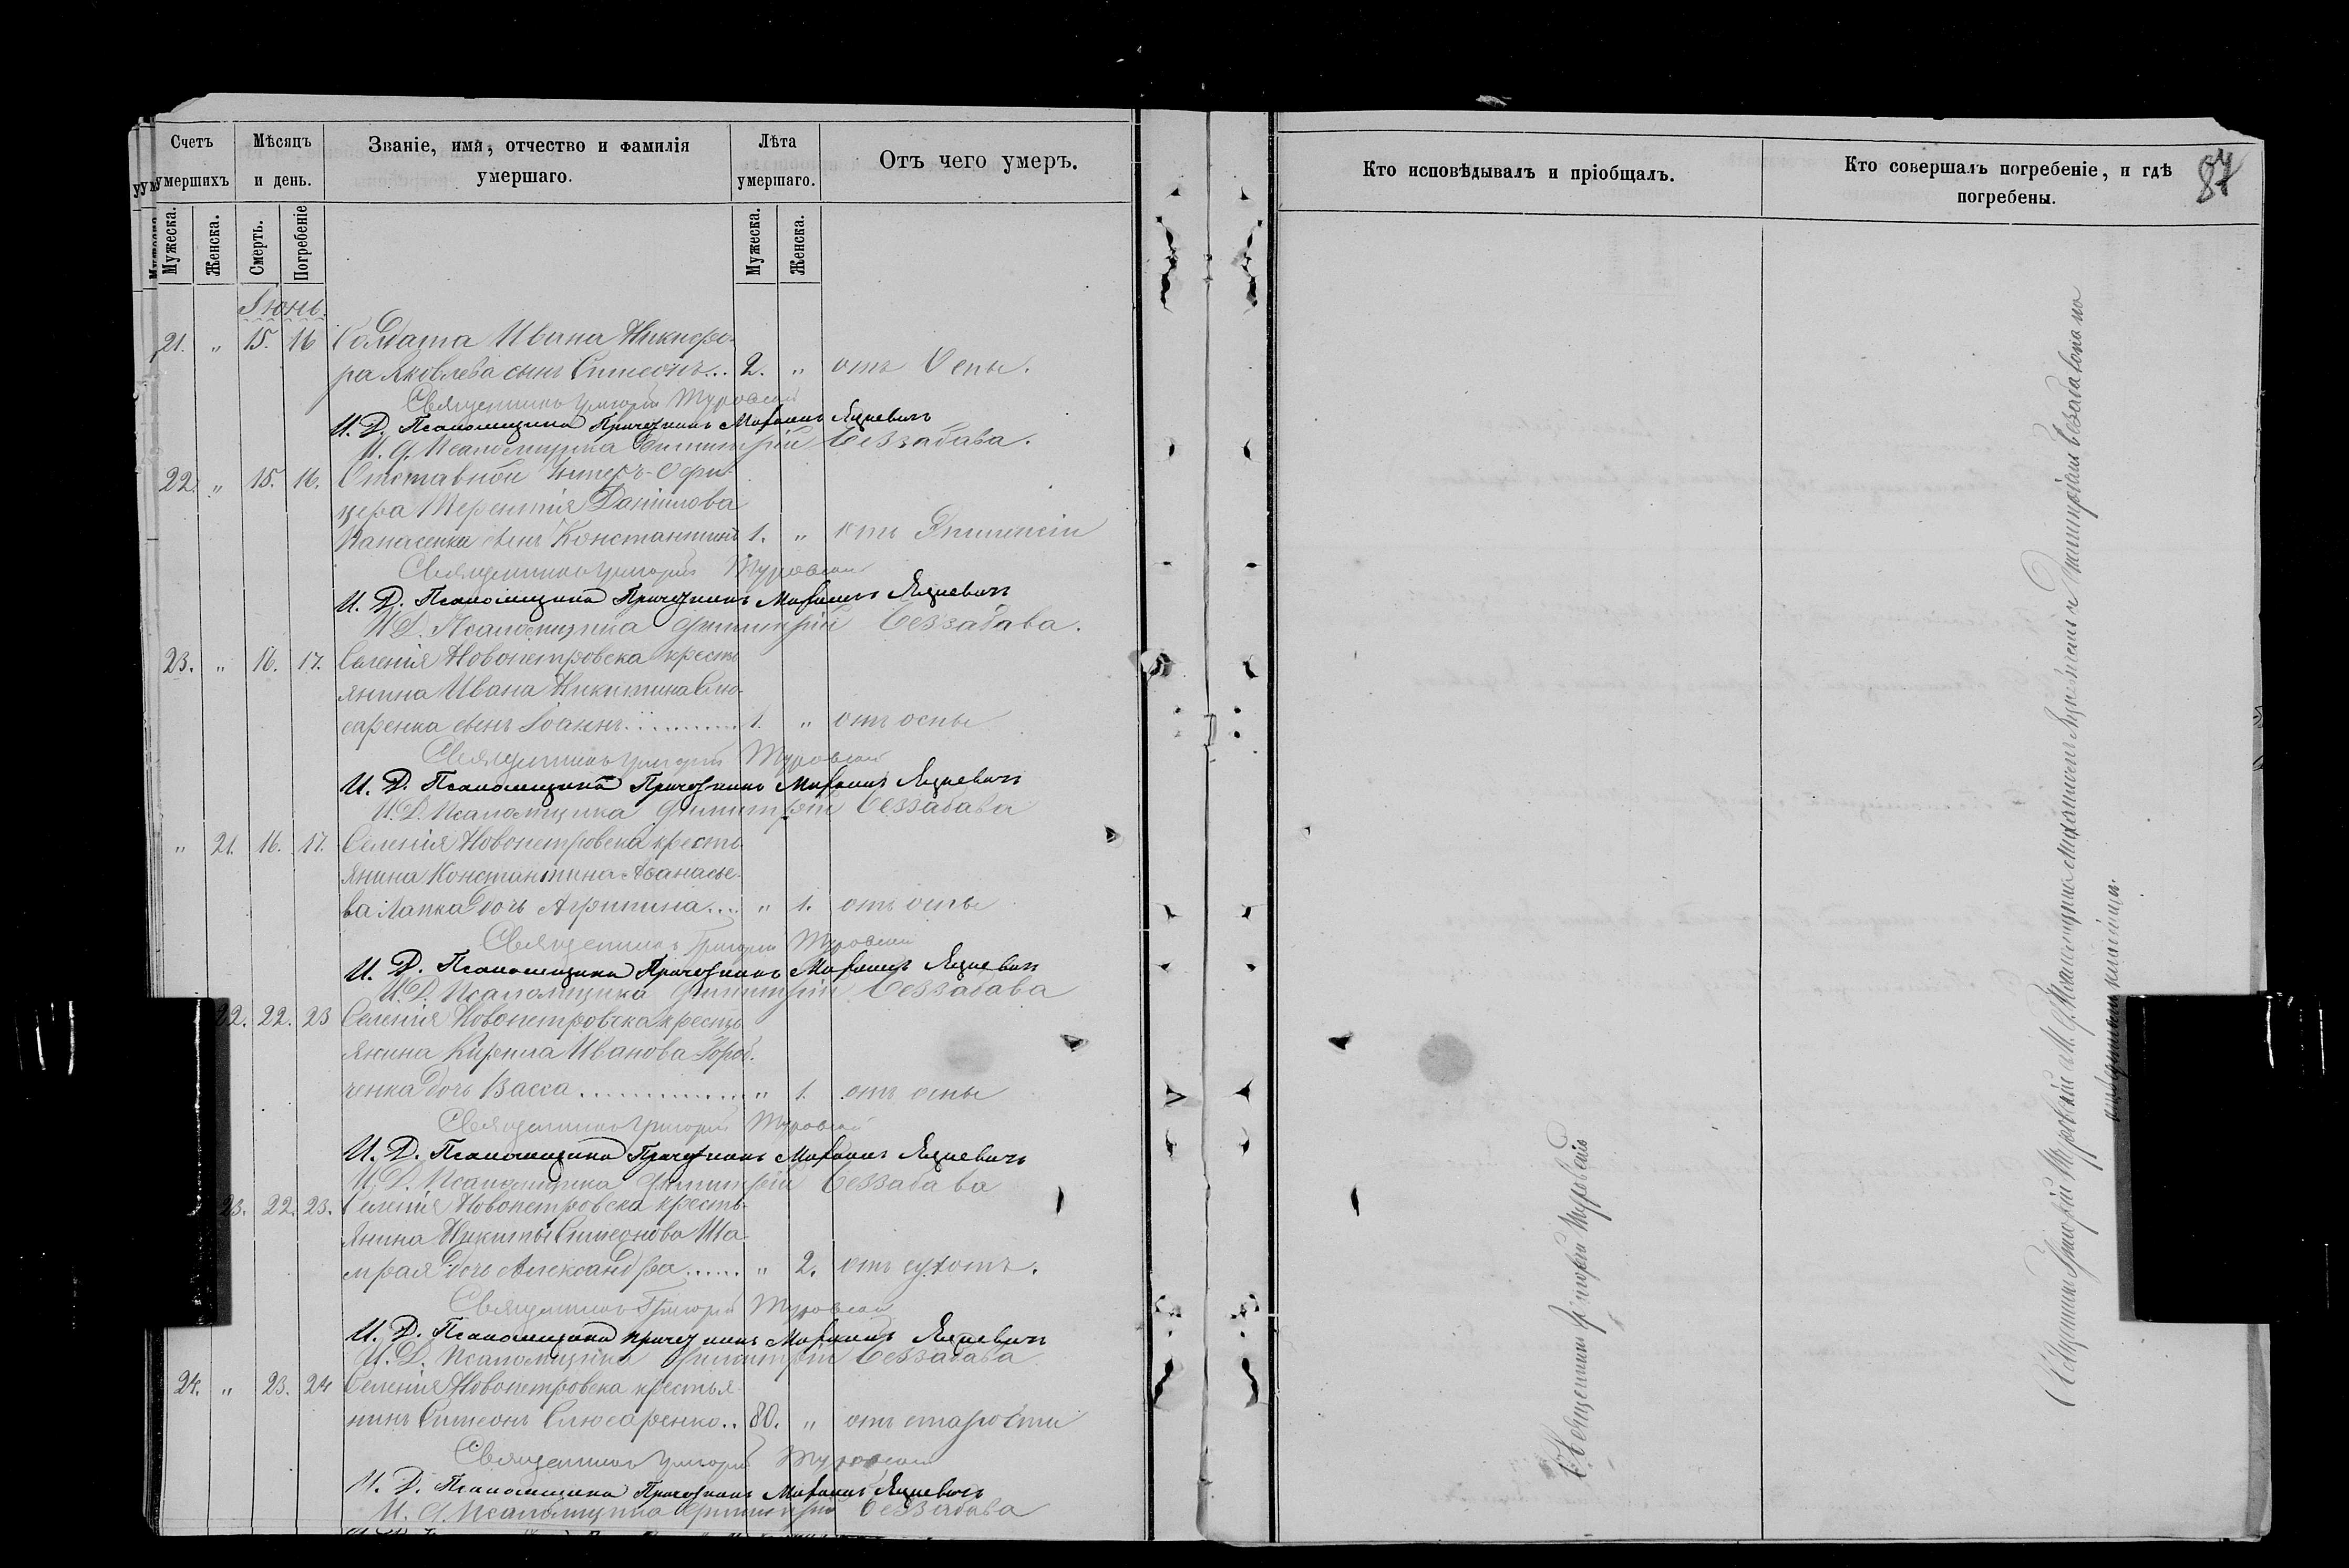 Счетъ умершихъ
Мѣсяцъ и день.
Званіе, имя, отчество и фамилія умершаго.
Лѣта умершаго.
Отъ чего умеръ.
Кто исповѣдывалъ и пріобщалъ.
Кто совершалъ погребеніе, и гдѣ погребены.
87
Мужеска.
Женска.
Смерть.
Погребеніе
Мужеска.
Женска.
Іюнь.
21. " 15. 16 Солдата Ивана Никифо-
ра Яковлева сынъ Симеонъ... 2. " отъ Оспы.
Священникъ Григорій Туровскій
И. Д. Псаломщика Михаилъ Яцневичъ
И. Д. Псаломщика Димитрій Беззабава.
22. " 15. 16. Отставной Унтеръ-Офи-
цера Терентія Данилова
Панасенка сынъ Константинъ 1. " отъ
Священникъ Григорій Туровскій
И. Д. Псаломщика Михаилъ Яцневичъ
И Д. Псаломщика Димитрій Беззабава.
23. " 16. 17. Селенія Новопетровска кресть
янина Ивана Никитина Слю-
саренка сынъ Іоаннъ............ 1. " отъ оспы
Священникъ Григорій Туровскій
И. Д. Псаломщика Михаилъ Яцневичъ
И. Д. Псаломщика Димитрій Беззабава
" 21. 16. 17. Селенія Новопетровска кресть-
янина Константина Аѳанасье-
ва Лапка дочь Агрипина.... " 1. отъ оспы
Священникъ Григорій Туровскій
И. Д. Псаломщика Михаилъ Яцневичъ
И. Д. Псаломщика Димитрій Беззабава
22. 22. 23 Селенія Новопетровска кресть
янина Кирила Иванова
ченка дочь Васса .............. " 1. отъ оспы
Священникъ Григорій Туровскій
И. Д. Псаломщика Михаилъ Яцневичъ
И Д. Псаломщика Димитрій Беззабава
23. 22. 23. Селенія Новопетровска кресть-
янина Никиты Симеонова Ша-
мрая дочь Александра...... " 2. отъ сухотъ.
Священникъ Григорій Туровскій
И. Д. Псаломщика Михаилъ Яцневичъ
И. Д. Псаломщика Димитрій Беззабава
24. " 23. 24 Селенія Новопетровска крестья-
нинъ Симеонъ Слюсаренко.. 80. " отъ старости
Священникъ Григорій Туровскій
И. Д. Псаломщика Михаилъ Яцневичъ
И. Д. Псаломщика Димитрій Беззабава
Священникъ Григорій Туровскій
Священникъ Григорій Туровскій съ И. Д. Псаломщика Михаиломъ Яцневичемъ и Димитріемъ Беззабавою на
кладбищѣ.